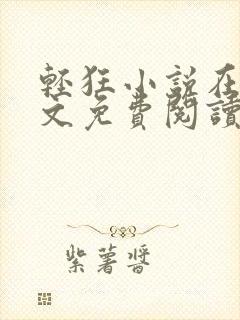 輕狂小說在
文免費閱讀
紫薯醬